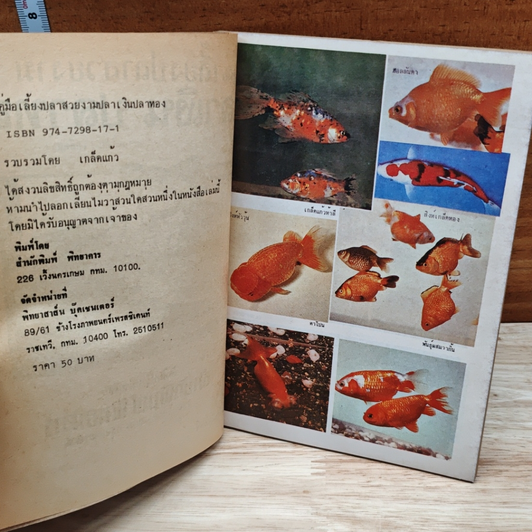 8
คู่มือเลี้ยงปลาสวยงามปลาเงินปลาทอง
ISBN 974-7298-17-1
รวบรวมโดย เกล็ดแก้ว
ได้สงวนลิขสิทธิ์ถูกต้องตามกฎหมาย
ห้ามนำไปลอกเลียนไม่ว่าส่วนใดส่วนหนึ่งในหนังสือเล่มนี้
โดยมิได้รับอนุญาตจากเจ้าของ
พิมพ์โดย
สำนักพิมพ์ พิทยาคาร
226 เวิ้งนครเกษม กทม. 10100.
จัดจำหน่ายที่
พิทยาสาส์น บุ๊คเซนเตอร์
89/61 ข้างโรงภาพยนตร์เพรสซิเดนท์
ราชเทวี, กทม. 10400 โทร. 2510511
ราคา 50 บาท
เกล็ดแก้วห้าสี
สิงห์เกล็ดทอง
ตาโปน